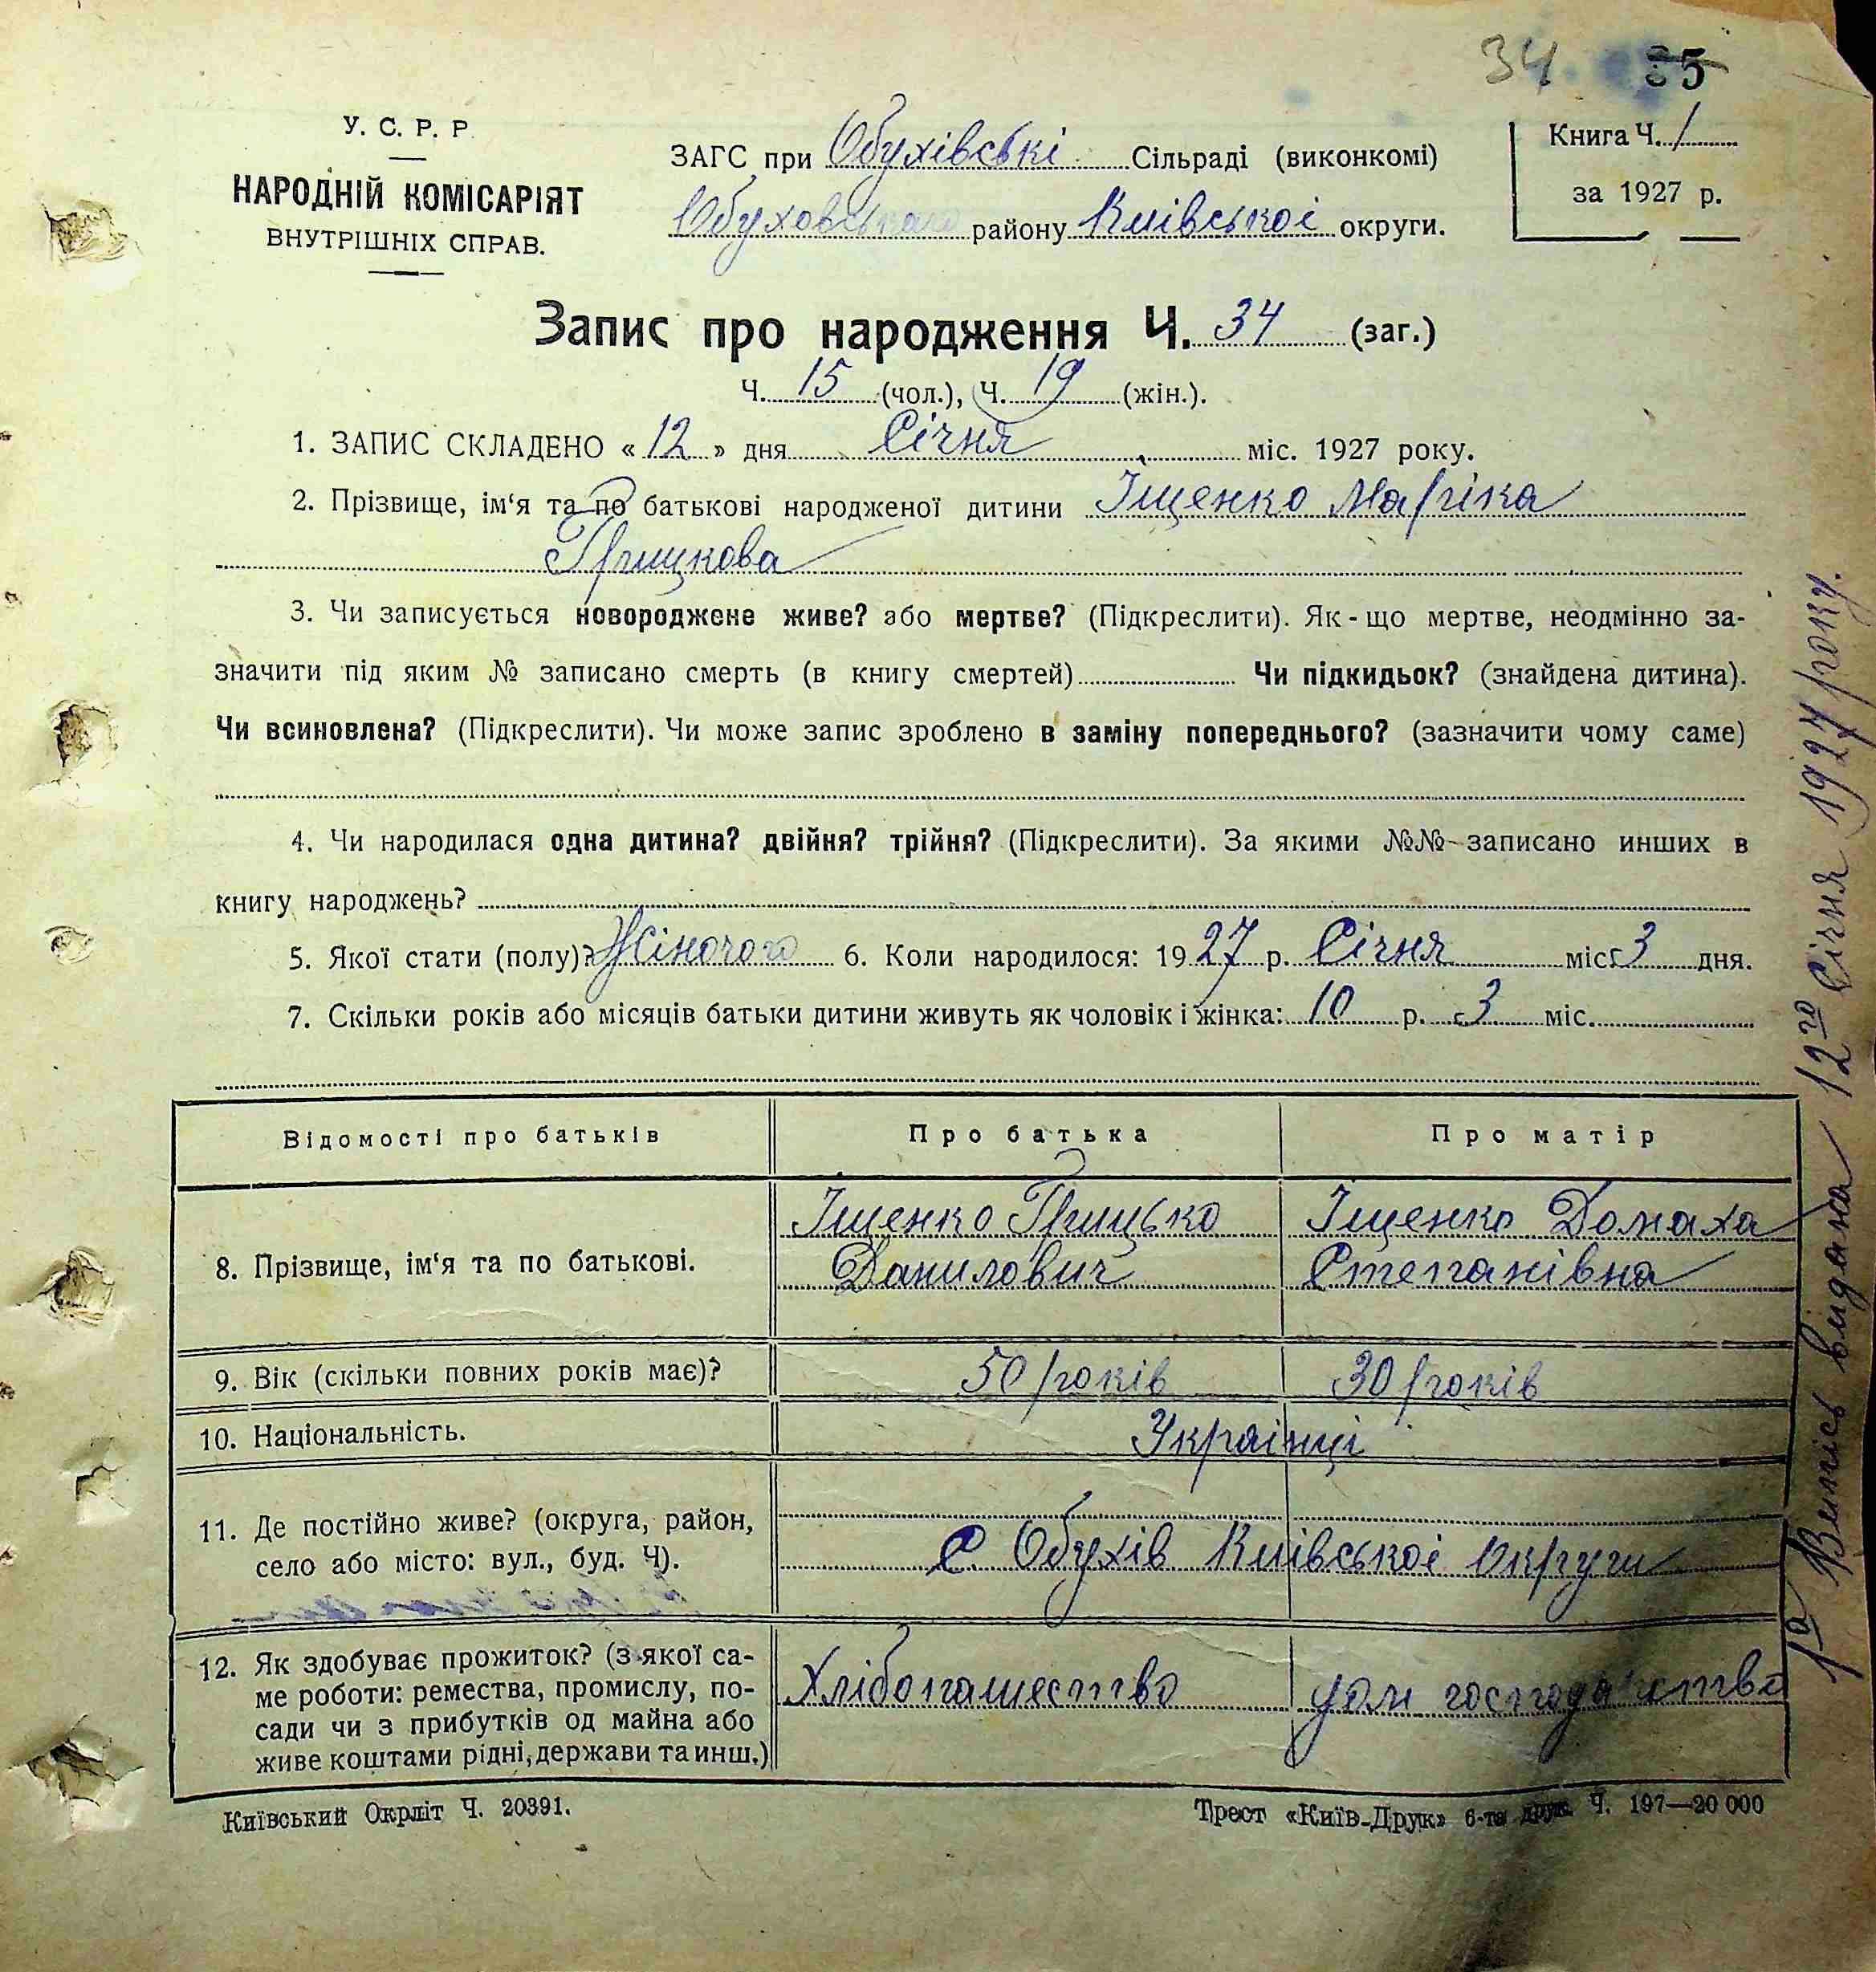 34. 35
У. С. Р. Р.
НАРОДНІЙ КОМІСАРІЯТ
ВНУТРІШНІХ СПРАВ.
ЗАГС при Обухівські Сільраді (виконкомі)
Обуховського району Київської округи.
Книга Ч. 1
за 1927 р.
Запис про народження Ч. 34 (заг.)
Ч. 15 (чол.), Ч. 19 (жін.).
1. ЗАПИС СКЛАДЕНО « 12 » дня Січня міс. 1927 року.
2. Прізвище, ім‘я та по батькові народженої дитини Іщенко Маріка
Грицкова
3. Чи записується новороджене живе? або мертве? (Підкреслити). Як - що мертве, неодмінно за-
значити під яким № записано смерть (в книгу смертей) Чи підкидьок? (знайдена дитина).
Чи всиновлена? (Підкреслити). Чи може запис зроблено в заміну попереднього? (зазначити чому саме)
4. Чи народилася одна дитина? двійня? трійня? (Підкреслити). За якими №№ записано инших в
книгу народжень?
5. Якої стати (полу)? Жіночого 6. Коли народилося: 1927 р. Січня міс. 3 дня.
7. Скільки років або місяців батьки дитини живуть як чоловік і жінка: 10 р. 3 міс.
Відомості про батьків Про батька Про матір
8. Прізвище, ім‘я та по батькові.
Іщенко Грицько
Данилович
Іщенко Домаха
Степанівна
9. Вік (скільки повних років має)? 50 років 30 років
10. Національність. Українці
11. Де постійно живе? (округа, район,
село або місто: вул., буд. Ч).
с. Обухів Київської округи
12. Як здобуває прожиток? (з якої са-
ме роботи: ремества, промислу, по-
сади чи з прибутків од майна або
живе коштами рідні, держави та инш.)
Хлібопашество
дом господарство
Київський Окрліт Ч. 20391.
Трест «Київ-Друк» 6-та друк. Ч. 197—20 000
1а Випісь видана 12го Січня 1927 року.